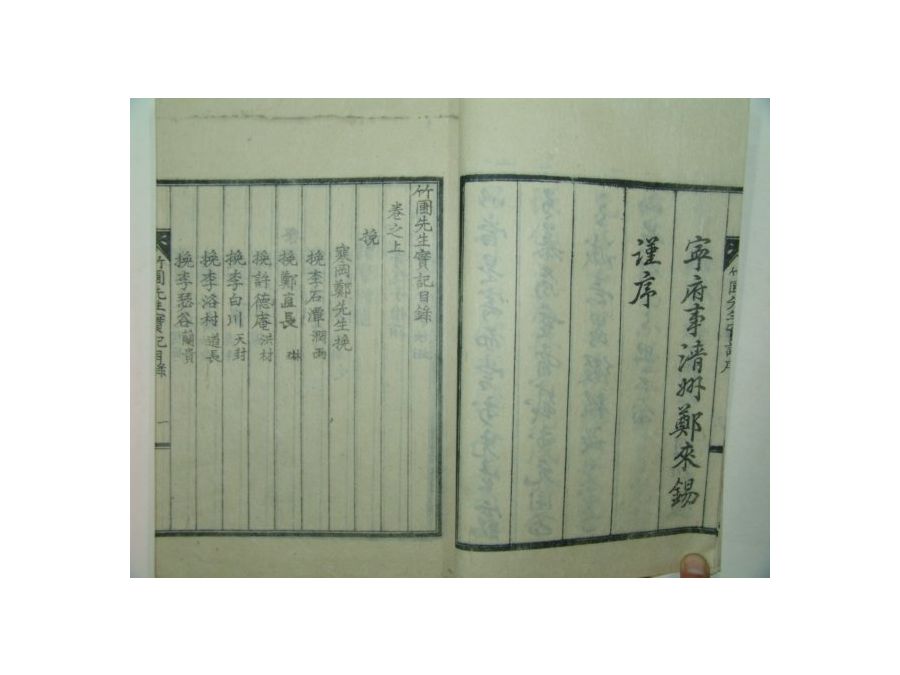 竹圃先生實記序
寧府事淸州鄭來錫
謹序
竹圃先生實記目錄
卷之上
挽
寒岡鄭先生挽
挽李石潭 潤雨
挽鄭直長
挽許德庵 洪材
挽李白川 天封
挽李洛村 道長
挽李瑟谷 蘭貴
竹圃先生實記目錄 一